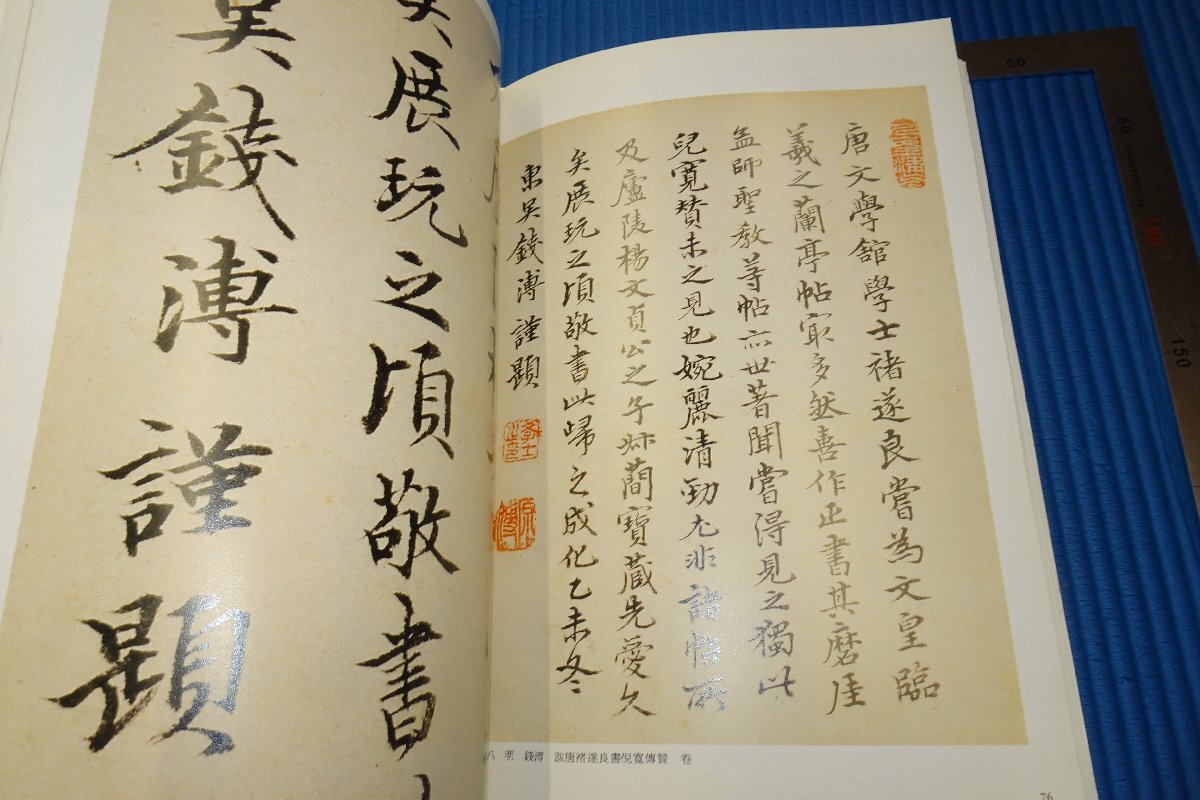 唐文學館學士褚遂良嘗為文皇臨
羲之蘭亭帖㝡多然善作正書其磨厓
孟師聖教等帖亦世著聞嘗得見之獨此
兒寬贊未之見也婉麗清勁尤非諸帖所
及廬陵楊文貞公之子叔簡寶藏先愛久
矣展玩之頃敬書此歸之成化乙未冬
東吳錢溥謹題
矣展玩之頃敬書
吳錢溥謹題
八 明 錢溥 跋唐褚遂良書倪寬傳贊 卷
76
50
50
100
150